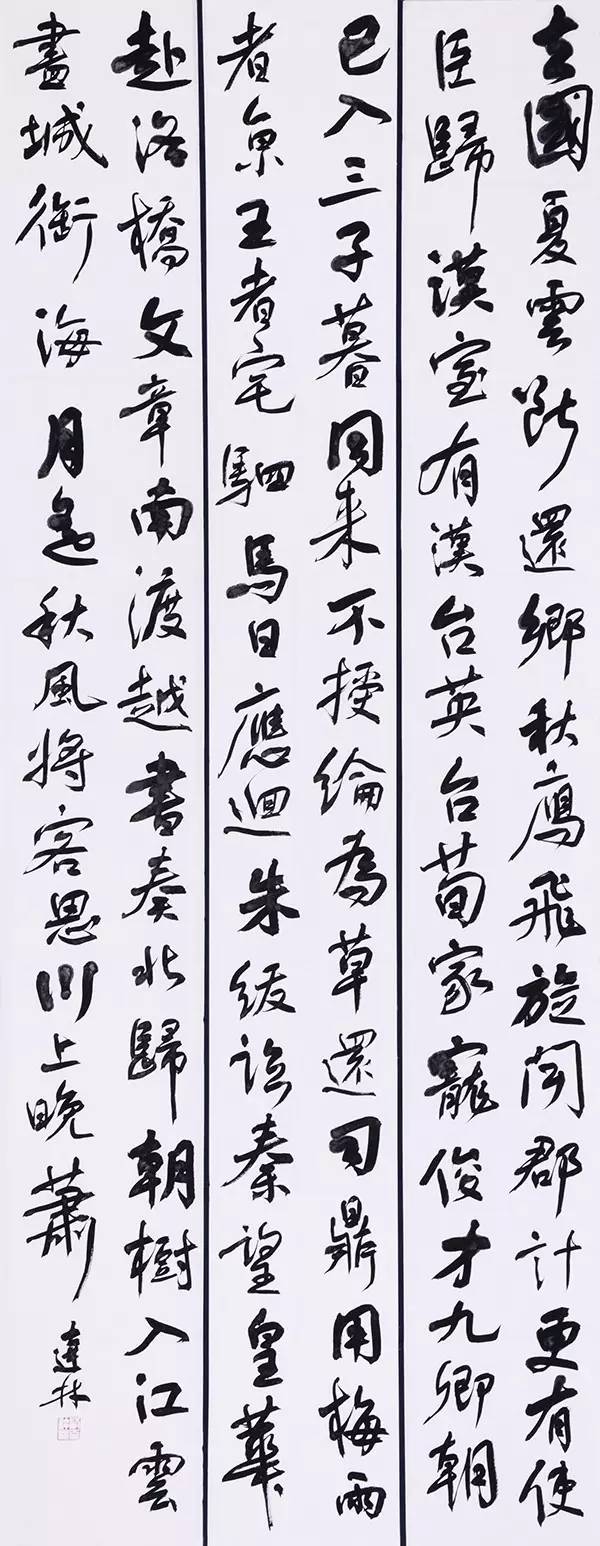 去國夏雲斷還鄉秋鴈飛旋聞郡計更有使
臣歸漢室有漢台英台荀家寵俊才九卿朝
已入三子暮同来不授綸為草還司鼎用梅雨
者京王者宅駟馬日應迴朱紱臨秦望皇華
赴洛橋文章南渡越書奏北歸朝樹入江雲
盡城銜海月遙秋風将客思川上晚蕭
達林